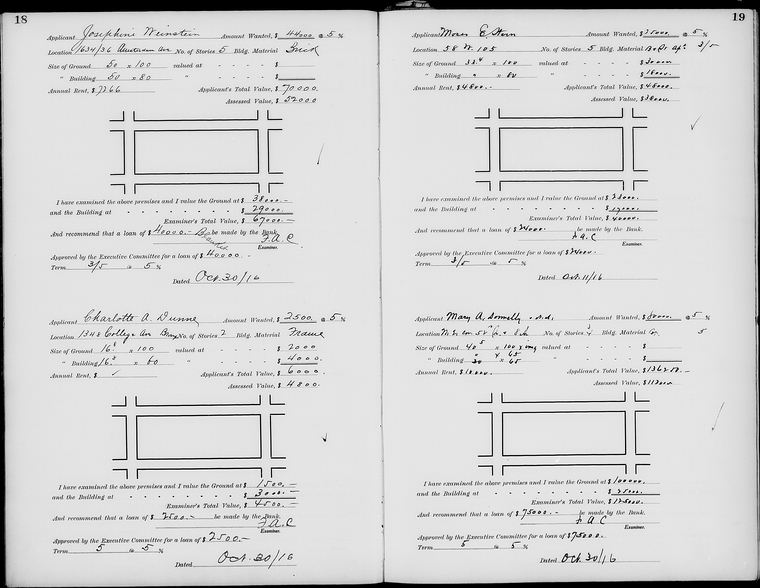 18
Applicant Josephine Weinstein Amount Wanted, $ 44000 @ 5 %
Location 1634/36 Amsterdam Ave No. of Stories 5 Bldg. Material Brick
Size of Ground 50 x 100 valued at - - - - $
" Building 50 x 80 " - - - - $
Annual Rent, $ 7266 Applicant's Total Value, $ 70000.
Assessed Value, $ 52000
I have examined the above premises and I value the Ground at $ 38000.—
and the Building at - - - - - - - $ 29000.—
Examiner's Total Value, $ 67000.—
And recommend that a loan of $ 40000.— be made by the Bank.
F.A.C
Examiner.
Approved by the Executive Committee for a loan of $ 40000.—
Term 3/5 @ 5 %
Dated Oct. 30/16
Applicant Charlotte A. Dunne Amount Wanted, $ 2500. @ 5 %
Location 1348 College Ave Bronx No. of Stories 2 Bldg. Material Frame
Size of Ground 16⁸ x 100 valued at - - - - $ 2000
" Building 16⁸ x 60 " - - - - $ 4000.
Annual Rent, $ ✓ Applicant's Total Value, $ 6000.
Assessed Value, $ 4800.
I have examined the above premises and I value the Ground at $ 1500.—
and the Building at - - - - - - - $ 3000.—
Examiner's Total Value, $ 4500.—
And recommend that a loan of $ 2500.— be made by the Bank.
F.A.C
Examiner.
Approved by the Executive Committee for a loan of $ 2500.—
Term 5 @ 5 %
Dated Oct. 30/16
19
Applicant Moses E Stern Amount Wanted, $ 25000. @ 5 %
Location 58 W. 105 No. of Stories 5 Bldg. Material 3/5
Size of Ground 33⁴ x 100 valued at - - - - $ 30000
" Building " x 80 " - - - - $ 18000.
Annual Rent, $ 4800.- Applicant's Total Value, $ 48000.
Assessed Value, $ 38000.
I have examined the above premises and I value the Ground at $ 28000.
and the Building at - - - - - - - $ 12000.
Examiner's Total Value, $ 40000.
And recommend that a loan of $ 24000. be made by the Bank.
F.A.C
Examiner.
Approved by the Executive Committee for a loan of $ 24000.
Term 3/5 @ 5 %
Dated Oct. 11/16
Applicant Mary A. Donnelly Amount Wanted, $ 80000. @ 5 %
Location No. of Stories Bldg. Material 5
Size of Ground 40⁵ x 100 valued at - - - - $
" Building x 65 " - - - - $
Annual Rent, $ Applicant's Total Value, $
Assessed Value, $ 112000
I have examined the above premises and I value the Ground at $ 100000.
and the Building at - - - - - - - $ 25000.
Examiner's Total Value, $ 125000.
And recommend that a loan of $ 75000.- be made by the Bank.
F A C
Examiner.
Approved by the Executive Committee for a loan of $ 75000.-
Term 5 @ 5 %
Dated Oct. 30/16